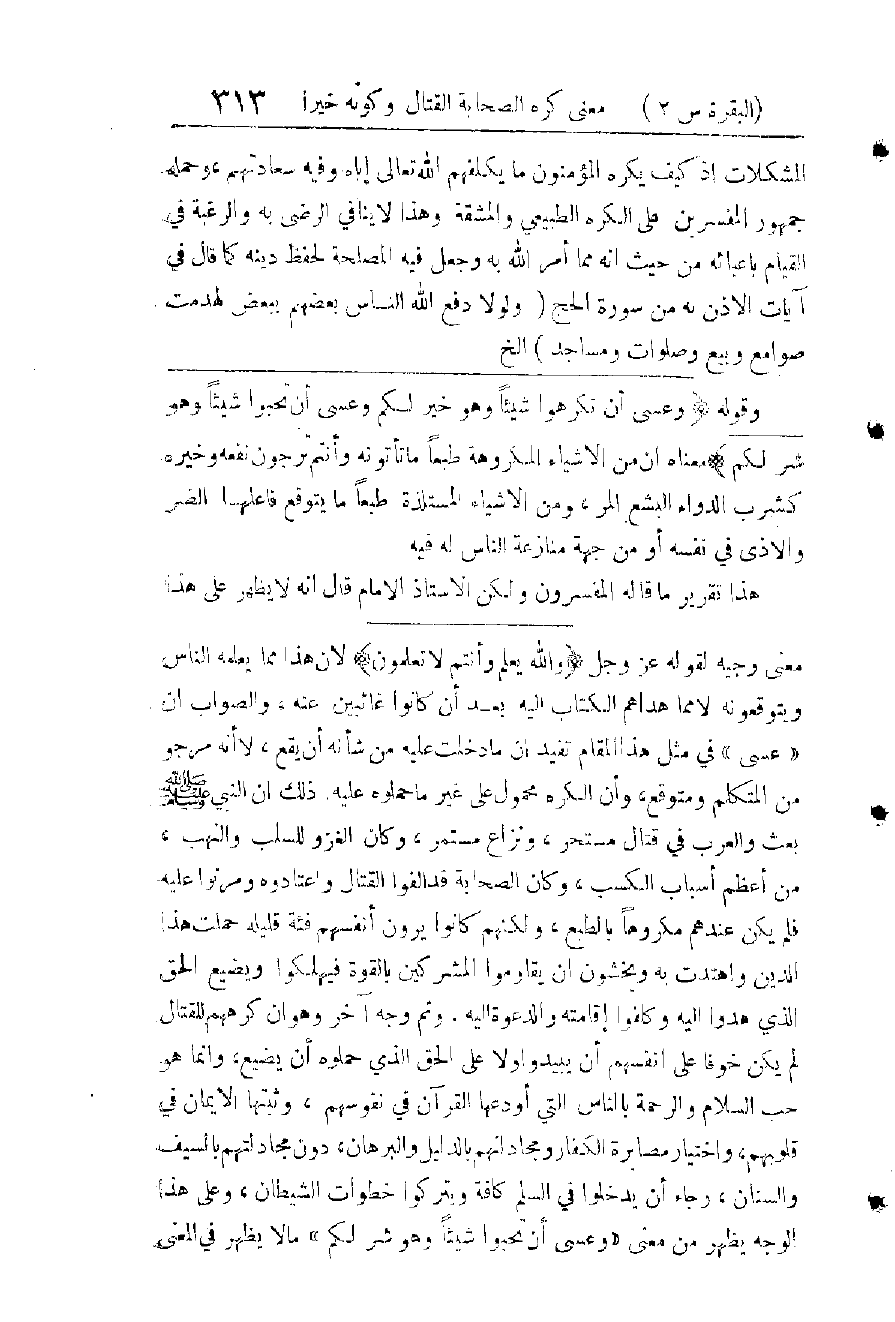 (البقرة س ٢) معنى كره الصحابة القتال وكونه خيرا ٣١٣
المشكلات إذ كيف يكره المؤمنون ما يكلفهم الله تعالى إياه وفيه سعادتهم ، وحمله
جمهور المفسرين على الكره الطبيعي والمشقة وهذا لا ينافي الرضى به والرغبة في
القيام باعبائه من حيث انه مما أمر الله به وجعل فيه المصلحة لحفظ دينه كما قال في
آيات الاذن به من سورة الحج ( ولولا دفع الله الناس بعضهم ببعض لهدمت
صوامع وبيع وصلوات ومساجد ) الخ
وقوله ﴿ وعسى أن تكرهوا شيئاً وهو خير لكم وعسى أن تحبوا شيئاً وهو
شر لكم ﴾ معناه ان من الاشياء المكروهة طبعاً ما تأتونه وأنتم ترجون نفعه وخيره
كشرب الدواء البشع المر ، ومن الاشياء المستلذة طبعاً ما يتوقع فاعلها الضر
والاذى في نفسه أو من جهة منازعة الناس له فيه
هذا تقرير ما قاله المفسرون ولكن الاستاذ الامام قال انه لا يظهر على هذا
معنى وجيه لقوله عز وجل ﴿ والله يعلم وأنتم لا تعلمون ﴾ لان هذا مما يعلمه الناس
ويتوقعونه لا مما هداهم الكتاب اليه بعد أن كانوا غائبين عنه ، والصواب ان
« عسى » في مثل هذا المقام تفيد ان ما دخلت عليه من شأنه أن يقع ، لا أنه مرجو
من المتكلم ومتوقع، وأن الكره محمول على غير ما حملوه عليه. ذلك ان النبي ﷺ
بعث والعرب في قتال مستحر ، ونزاع مستمر ، وكان الغزو للسلب والنهب ،
من أعظم أسباب الكسب ، وكان الصحابة قد الفوا القتال واعتادوه ومرنوا عليه
فلم يكن عندهم مكروهاً بالطبع ، ولكنهم كانوا يرون أنفسهم فئة قليله حملت هذا
الدين واهتدت به ويخشون ان يقاوموا المشركين بالقوة فيهلكوا ويضيع الحق
الذي هدوا اليه وكلفوا إقامته والدعوة اليه . وثم وجه آخر وهو ان كرههم للقتال
لم يكن خوفا على انفسهم أن يبيدوا ولا على الحق الذي حملوه أن يضيع، وانما هو
حب السلام والرحمة بالناس التي أودعها القرآن في نفوسهم ، وثبتها الايمان في
قلوبهم، واختيار مصابرة الكفار ومجادلتهم بالدليل والبرهان، دون مجادلتهم بالسيف
والسنان ، رجاء أن يدخلوا في السلم كافة ويتركوا خطوات الشيطان ، وعلى هذا
الوجه يظهر من معنى «وعسى أن تحبوا شيئاً وهو شر لكم» مالا يظهر في المعنى